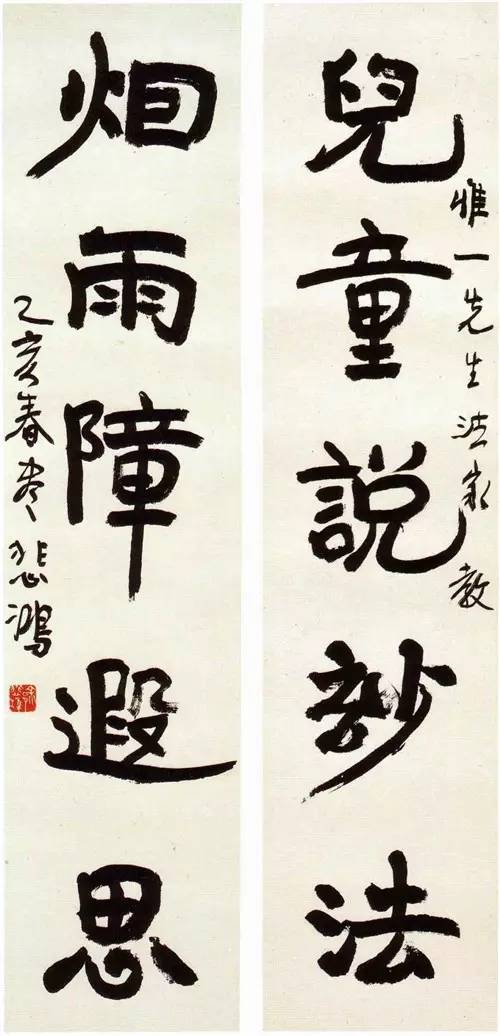 惟一先生法家 教
兒童說玅法
烟雨障遐思
乙亥春尽 悲鴻